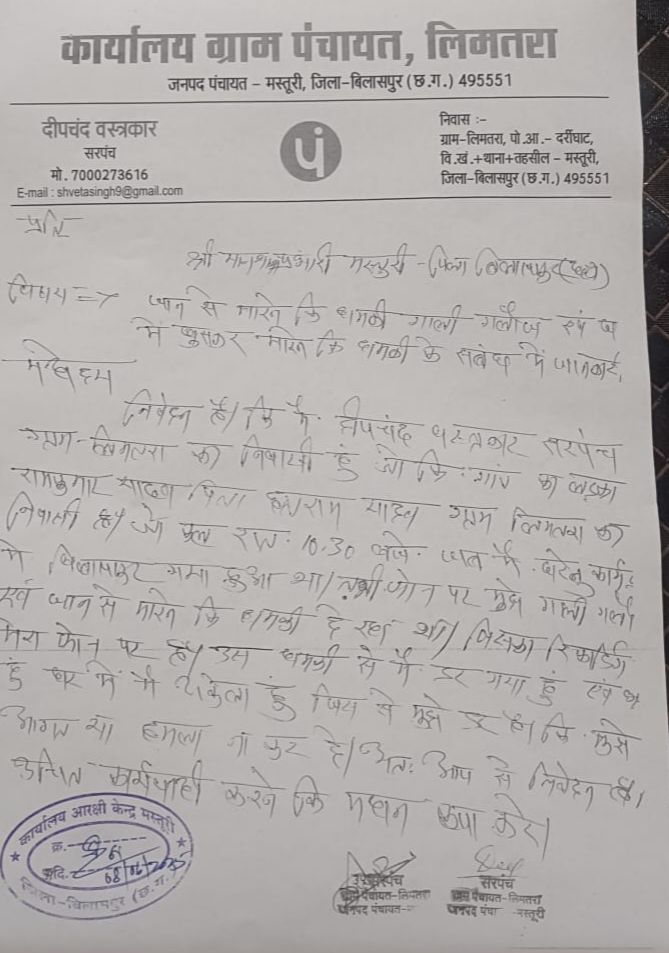 कार्यालय ग्राम पंचायत, लिमतरा
जनपद पंचायत – मस्तूरी, जिला–बिलासपुर (छ.ग.) 495551
दीपचंद वस्त्रकार
सरपंच
मो. 7000273616
E-mail : shvetasingh9@gmail.com
पं
निवास :–
ग्राम–लिमतरा, पो.आ.– दर्रीघाट,
वि.खं.+थाना+तहसील – मस्तूरी,
जिला–बिलासपुर (छ.ग.) 495551
प्रति
श्री मस्तुरी - बिलासपुर (छ.ग)
विषय => जान से मारने कि धमकी गाली गलौज एवं घ
में घुसकर मारने कि धमकी के संबंध में जानकारी
महोदय
निवेदन है। कि मैं दीपचंद वस्त्रकार सरपंच
ग्राम-लिमतरा का निवासी हुं जो कि गांव का लड़का
रामकुमार यादव पिता यादव ग्राम लिमतरा का
निवासी है। जो कल रात 10.30 बजे जब मैं घरेलु कार्य
में बिलासपुर गया हुआ था। तभी फोन पर मुझे गाली गलौ
एवं जान से मारने कि धमकी दे रहा था। जिसका रिकार्डिंग
मेरा फोन पर है। उस धमकी से मैं डर गया हुं एवं
हुं घर में मैं अकेला हुं जिस से मुझे डर है। कि मुझे
या हमला ना कर दे। अतः आप से निवेदन है।
उचित कार्यवाही करने कि महान कृपा करें।
कार्यालय आरक्षी केन्द्र मस्तूरी
क्र.
दि.
जिला–बिलासपुर (छ.ग.)
उपसरपंच
ग्राम पंचायत-लिमतरा
जनपद पंचायत-
सरपंच
ग्राम पंचायत-लिमतरा
जनपद पंचा -मस्तूरी